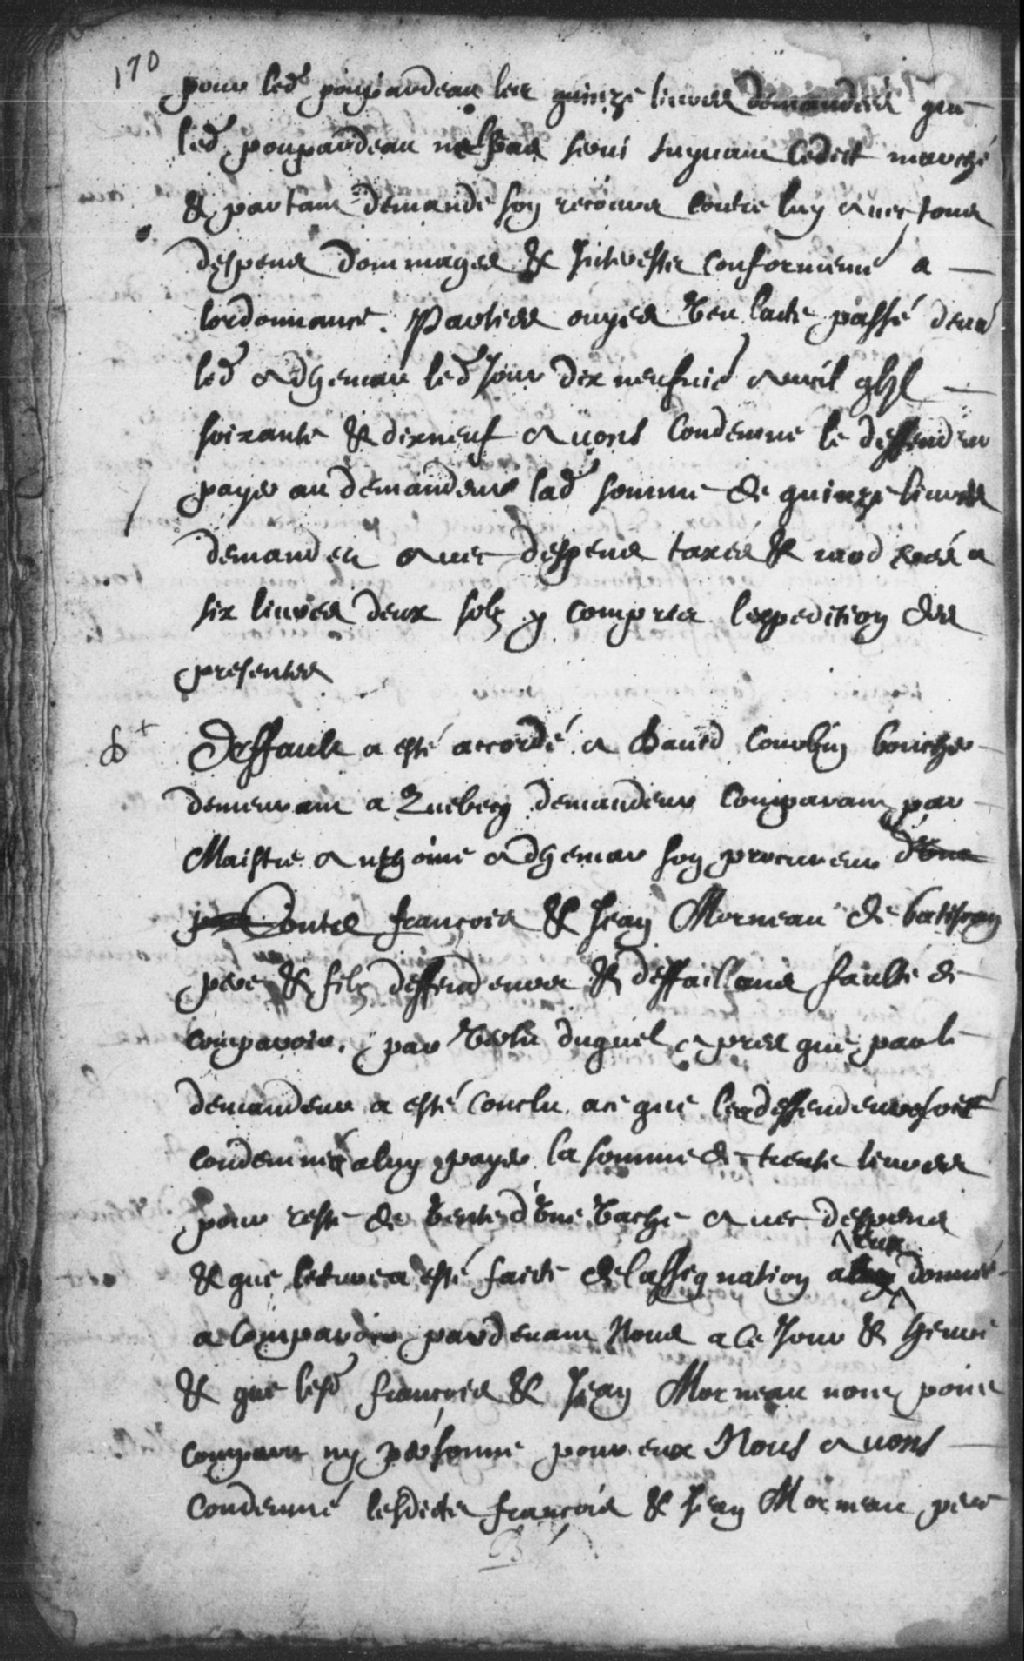 170
pour led poupardeau les quinze livres demandées que
led poupardeau nest pas suivi ledit marché
& partant demande son recours contre luy avec tous
despens dommages & Interestz conformement a
lordonnance. Parties ouyes Veu lacte passé devt
led adhemar led Jour dix neufvie avril
soixante & dixneuf avons Condemné le deffendeur
payer au demandeur lad somme de quinze livres
demandée avec despens taxés & moderés a
six livres deux solz y compris lexpedition des
presentes
Deffault a esté accordé a David Courbin boucher
demeurant a Quebecq demandeur Comparant par
Maistre Anthoine Adhemar son procureur
Contre françois & Jean Morneau de batiscan
pere & filz deffendeurs & deffaillans faulte de
comparoir. par Vertu duquel apres que par le
demandeur a esté Conclu a ce que les deffendeurs soit
condemnés a luy payer la somme de trente livres
pour reste de Vente d'Une Vache avec despens
& que lecture a esté faicte de lassignation a eux donnée
a Comparoir pardevant Nous a ce Jour & heure
& que lesd françois & Jean Morneau nont point
comparu ny personne pour eux Nous avons
Condemné lesdictz françois & Jean Morneau pere